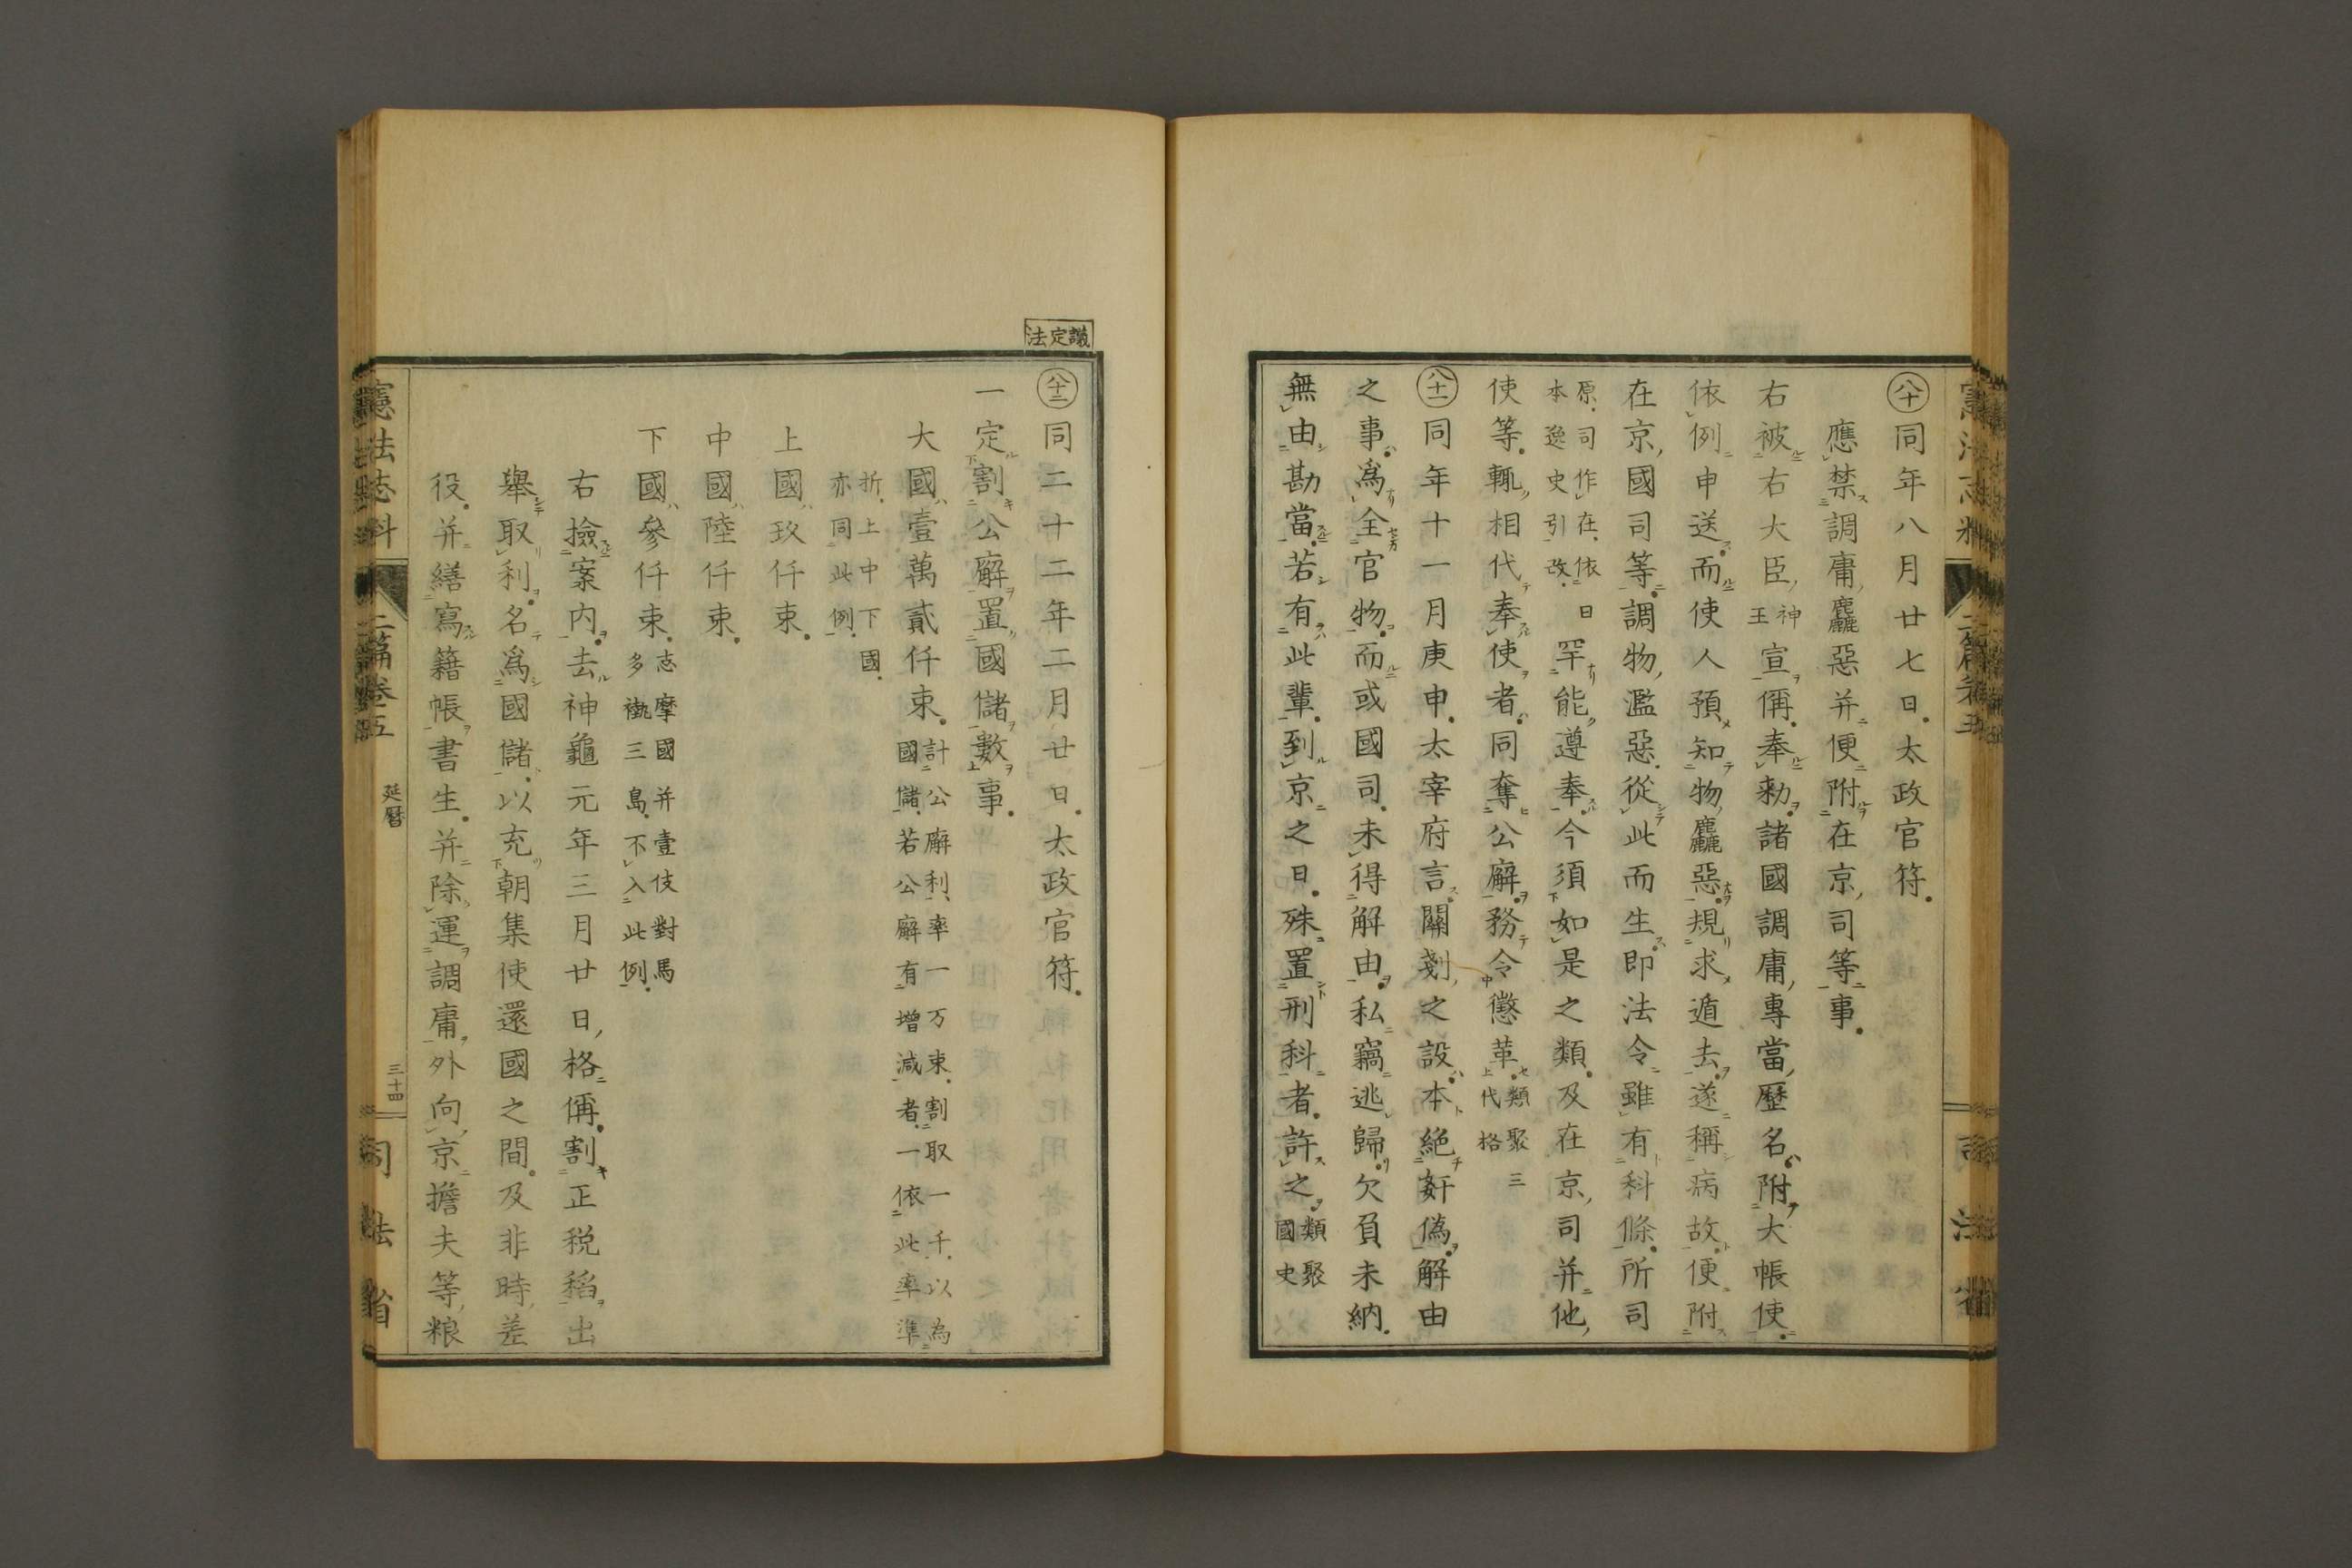 八十 同年八月廿七日太政官符
應禁調庸麤惡并便附在京司等事
右被右大臣神王宣偁奉勅諸國調庸專當歷名附大帳使
依例申送而使人預知物麤惡規求遁去遂稱病故便附
在京國司等調物濫惡從此而生即法令雖有科條所司
原司作在依本逸史引改日罕能遵奉今須如是之類及在京司并他
使等輙相代奉使者同奪公廨務令懲革類聚三代格
八十一 同年十一月庚申太宰府言關剗之設本絶奸僞解由
之事爲全官物而或國司未得解由私竊逃歸欠負未納
無由勘當若有此輩到京之日殊置刑科者許之類聚國史
議定法
八十二 同二十二年二月廿日太政官符
一定割公廨置國儲數事
大國壹萬貳仟束計公廨利率一万束割取一千以為國儲若公廨有增減者一依此率準
折上中下國亦同此例
上國玖仟束
中國陸仟束
下國參仟束志摩國并壹伎對馬多褹三島不入此例
右撿案内去神龜元年三月廿日格偁割正税稻出
舉取利名爲國儲以充朝集使還國之間及非時差
役并繕寫籍帳書生并除運調庸外向京擔夫等粮
憲法志料 二篇卷五 延曆 三十四 司法省